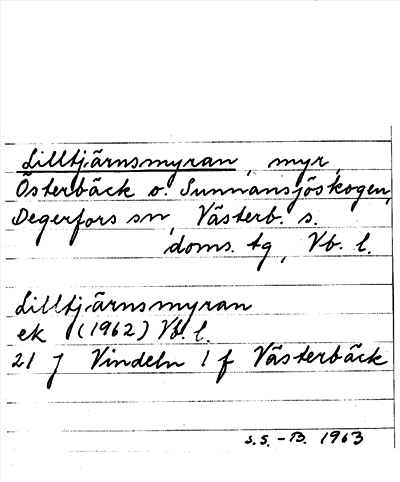 Lilltjärnsmyran, myr,
Österbäck o. Sunnansjöskogen,
Degerfors sn, Västerb. s.
doms. tg, Vb. l.
Lilltjärnsmyran
ek (1962) Vb. l.
21 J Vindeln 1 f Västerbäck
S.S. - B. 1963